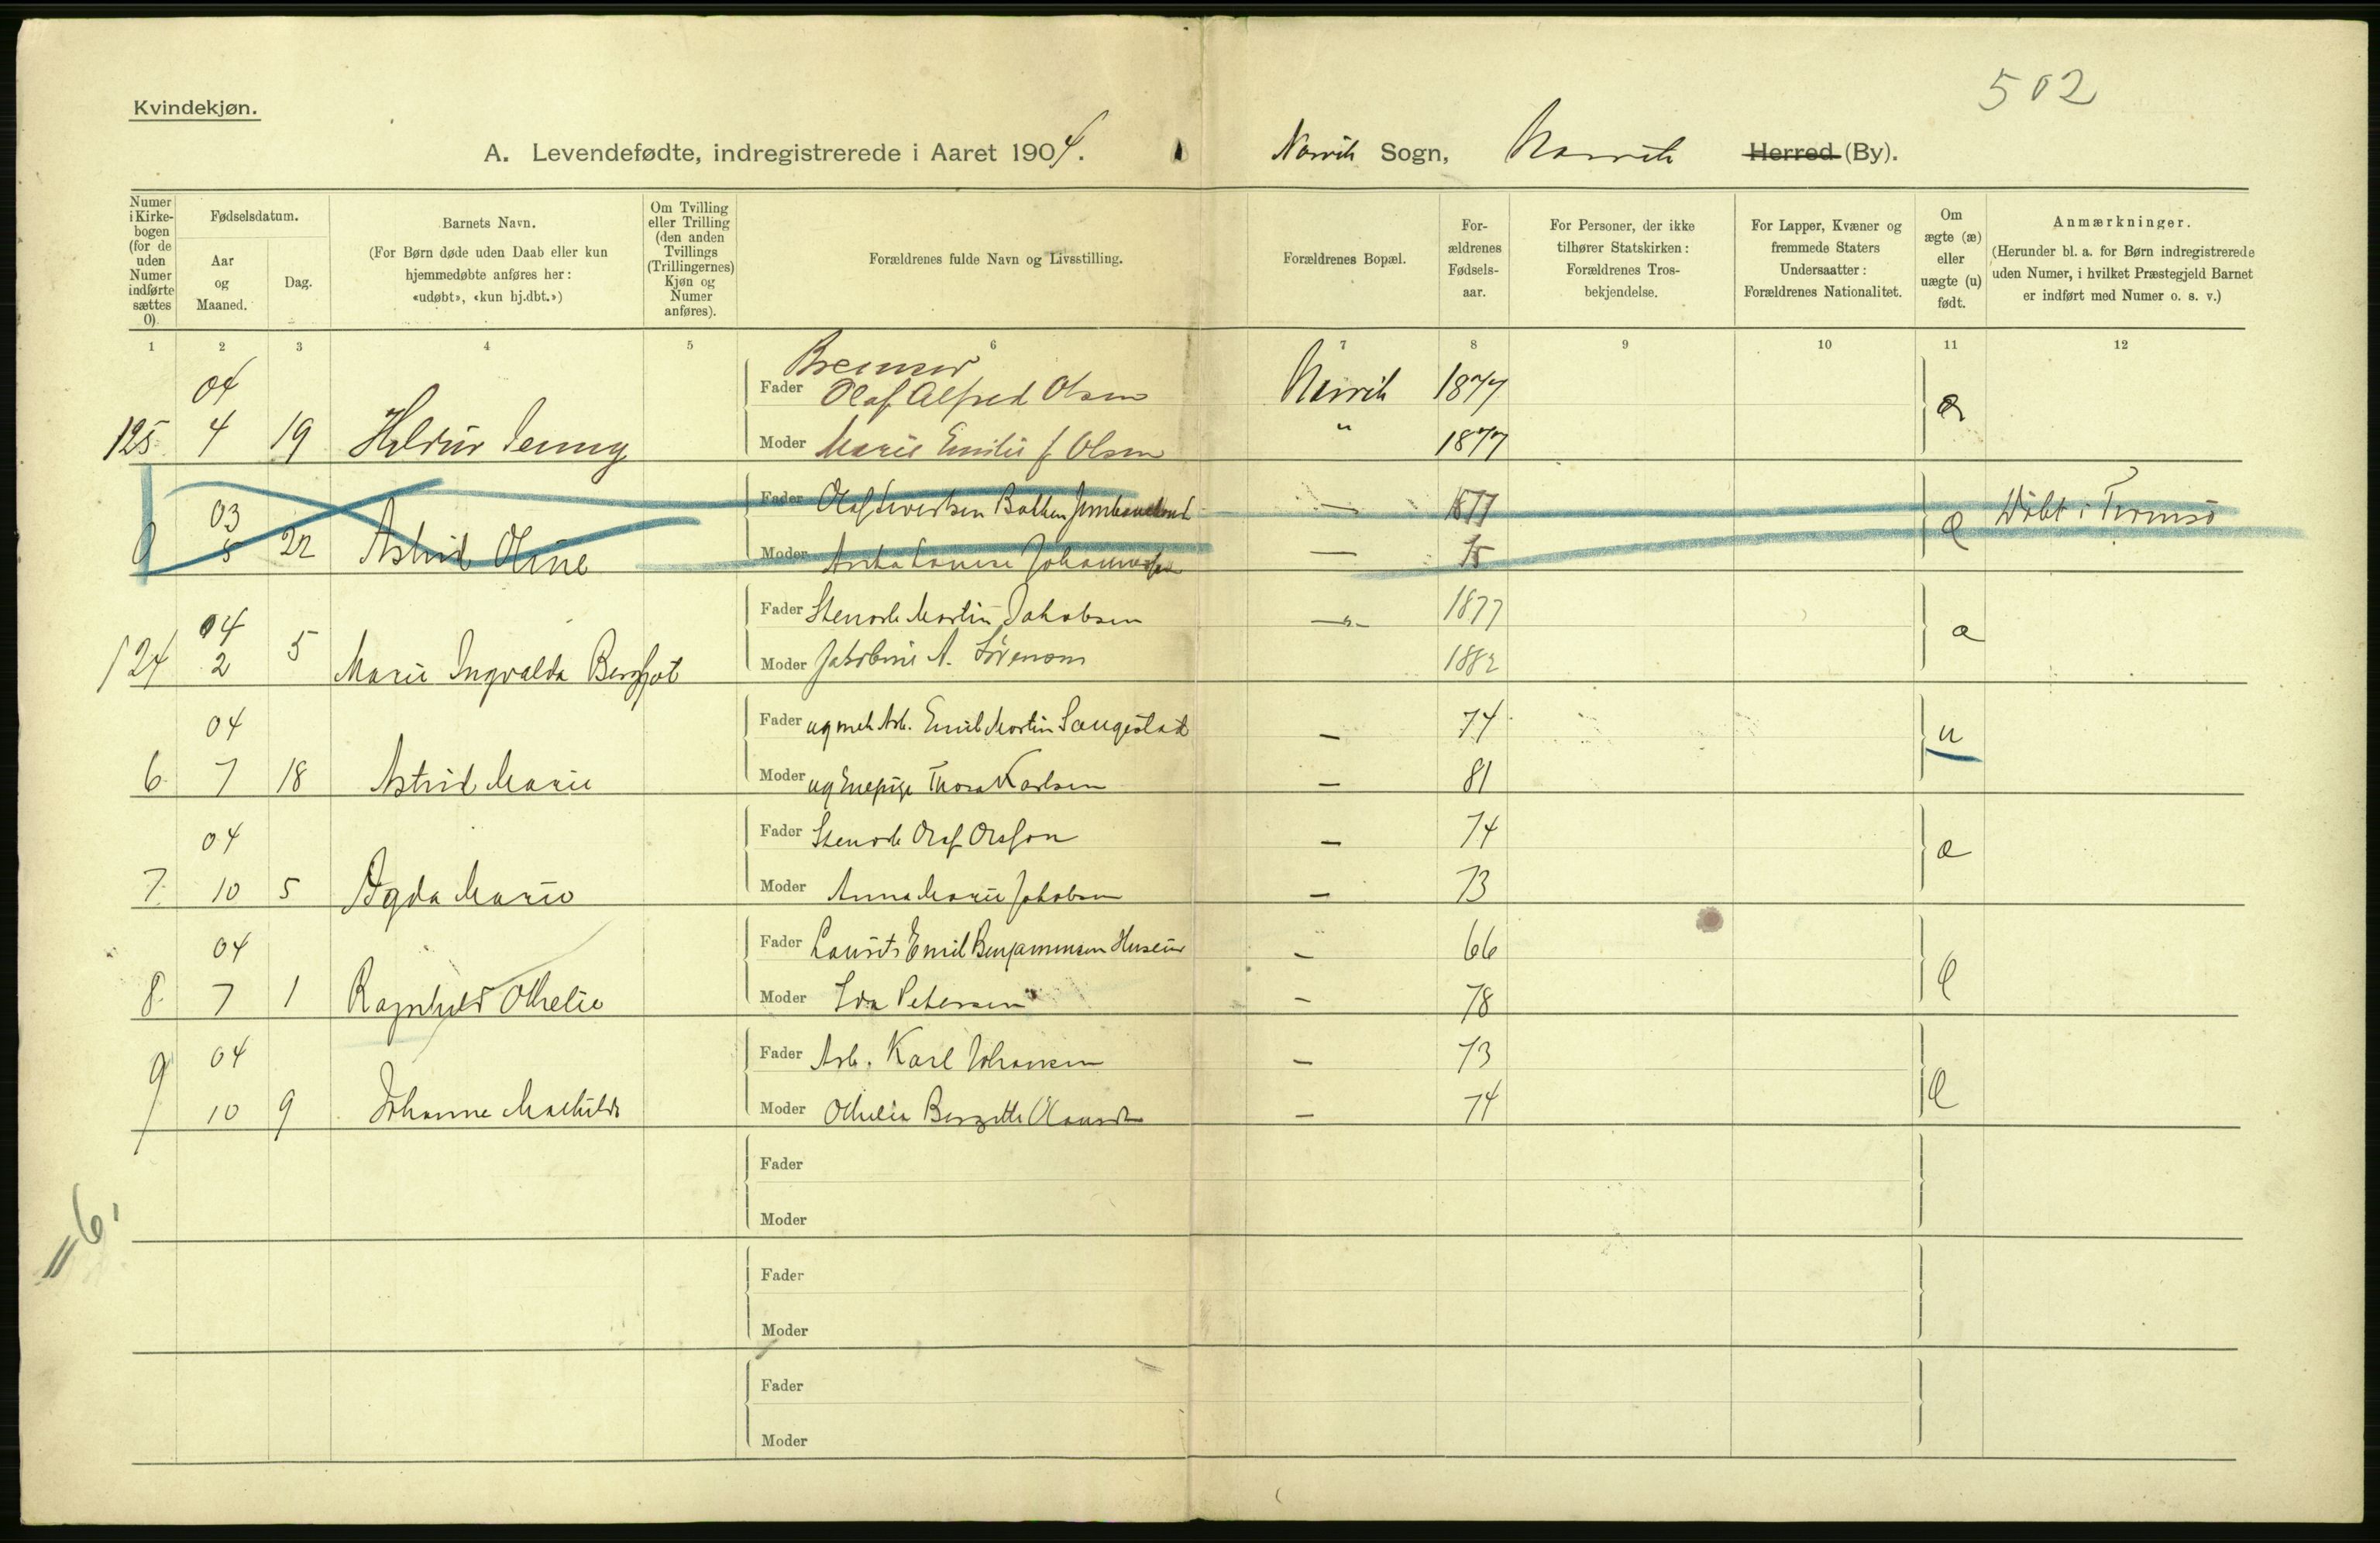 502
Kvindekjøn.
A. Levendefødte, indregistrerede i Aaret 1904. Narvik Sogn, Narvik Herred (By).
Numer i Kirke- bogen (for de uden Numer indførte sættes 0).
Fødselsdatum.
Aar og Maaned.
Dag.
Barnets Navn.
(For Børn døde uden Daab eller kun hjemmedøbte anføres her: «udøbt», «kun hj.dbt.»)
Om Tvilling eller Trilling (den anden Tvillings (Trillingernes) Kjøn og Numer anføres).
Forældrenes fulde Navn og Livsstilling.
Forældrenes Bopæl.
For- ældrenes Fødsels- aar.
For Personer, der ikke tilhører Statskirken: Forældrenes Tros- bekjendelse.
For Lapper, Kvæner og fremmede Staters Undersaatter: Forældrenes Nationalitet.
Om ægte (æ) eller uægte (u) født.
Anmærkninger.
(Herunder bl. a. for Børn indregistrerede uden Numer, i hvilket Præstegjeld Barnet er indført med Numer o. s. v.)
1 2 3 4 5 6 7 8 9 10 11 12
Bremser
04 Fader Olaf Alfred Olsen Narvik 1877 æ
125 4 19 Hildur Jenny Moder Marie Emilie f Olsen " 1877
03 Fader Olaf Sivertsen Bakken — 1877 æ Døbt i Tromsø
0 5 22 Astrid Oline Moder Anna Louise Johannesen — 75
04 Fader Stenarb Martin Jakobsen —"— 1877 æ
124 2 5 Marie Ingvalda Bergljot Moder Jakobine A. Sørensen 1882
04 Fader ugmch Arb. Emil Martin Saugestad — 74 u
6 7 18 Astrid Marie Moder ug Thora Karlsen — 81
04 Fader Stenarb Olaf Olsson — 74 æ
7 10 5 Agda Marie Moder Anna Marie Jakobsen — 73
04 Fader Laurits Emil Benjaminsen Huseier — 66 æ
8 7 1 Ragnhild Othelie Moder Ida Petersen — 78
04 Fader Arb. Karl Johansen — 73 æ
9 10 9 Johanne Mathilde Moder Othelia Bergitte — 74
Fader
Moder
= 6.
Fader
Moder
Fader
Moder